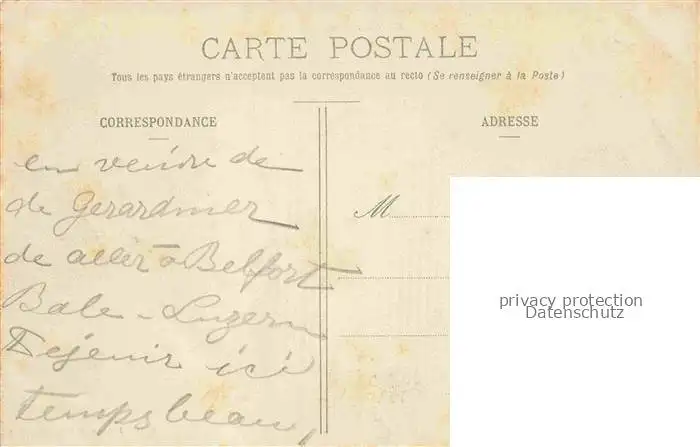 CARTE POSTALE
Tous les pays étrangers n'acceptent pas la correspondance au recto (Se renseigner à la Poste)
CORRESPONDANCE
ADRESSE
en de
de Gerardmer
de aller à Belfort
Bale - Luzern
Dejenir ici
temps beau,
M
privacy protection
Datenschutz